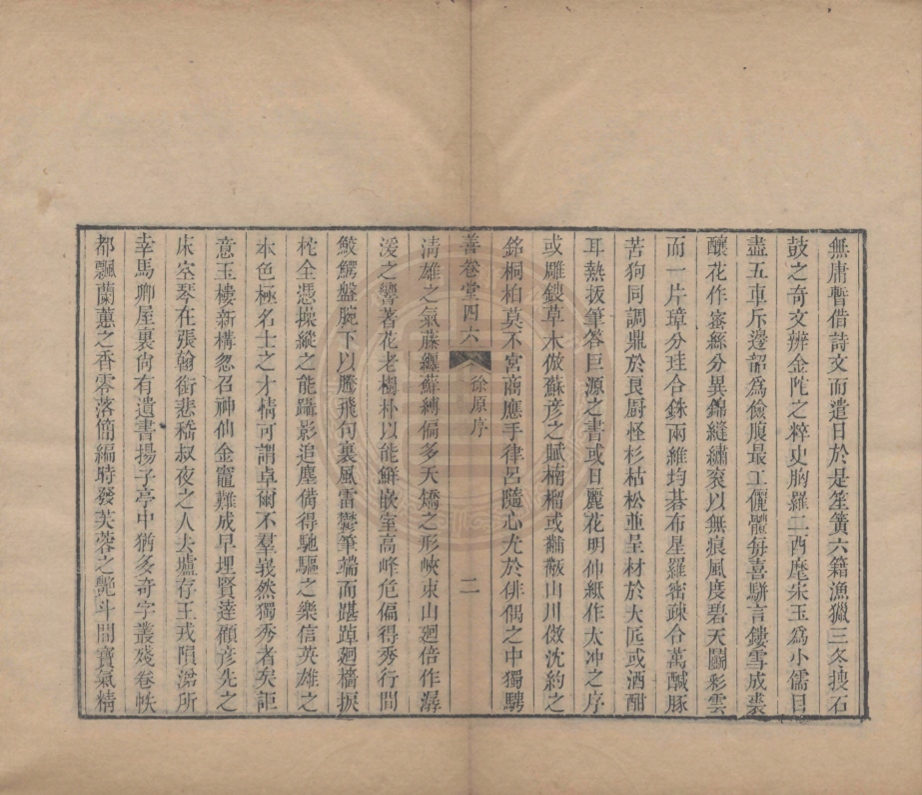 無庸暫借詩文而遣日於是笙簧六籍漁獵三冬搜石
鼓之奇文辨金陀之粹史胸羅二酉麾宋玉為小儒目
盡五車斥邊韶為儉腹最工儷體每喜駢言鏤雪成裘
釀花作蜜絲分異錦縫繡衮以無痕風度碧天鬭彩雲
而一片璋分珪合銖兩維均碁布星羅密疎合萬醎豚
苦狗同調鼎於良厨怪杉枯松並呈材於大匠或酒酣
耳熱拔筆答巨源之書或日麗花明伸紙作太冲之序
或雕鎪草木倣蘇彦之賦楠榴或黼黻山川倣沈約之
銘桐柏莫不宮商應手律呂隨心尤於俳偶之中獨騁
善卷堂四六 徐原序 二
淸雄之氣藤纏蘚縛偏多天矯之形峽束山廻倍作潺
湲之響著花老樹朴以能鮮嵌空高峰危偏得秀行間
鮫鰐盤腕下以騰飛句裏風雷鬱筆端而踸踔廻檣捩
柁全憑操縱之能躡影追塵備得馳驅之樂信英雄之
本色極名士之才情可謂卓爾不羣嶷然獨秀者矣詎
意玉樓新構忽召神仙金竈難成早埋賢達顧彦先之
床空琴在張翰銜悲嵇叔夜之人去壚存王戎隕涕所
幸馬卿屋裏尙有遺書揚子亭中猶多奇字叢殘卷帙
都飄蘭蕙之香零落簡編時發芙蓉之艷斗間寶氣精